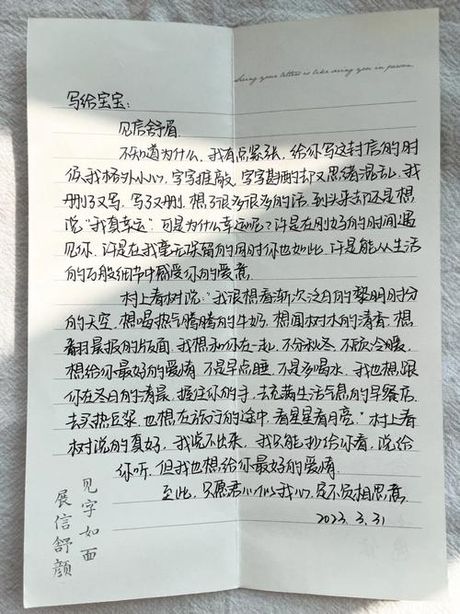 Seeing your letters is like seeing you in person
写给宝宝：
见信舒眉。
不知道为什么，我有点紧张，给你写这封信的时
候我格外小心，字字推敲，字字斟酌却又思绪混乱，我
删了又写，写了又删，想了很多很多的话，到头来却还是想
说“我真幸运”可是为什么幸运呢？许是在刚好的时间遇
见你，许是在我毫无保留的同时你也如此，许是能从生活
的百般细节中感受你的爱意
村上春树说：“我很想看渐次泛白的黎明时分
的天空，想喝热气腾腾的牛奶，想闻树木的清香，想
翻晨报的版面，我想和你在一起，不分秋冬，不顾冷暖，
想给你最好的爱情，不是早点睡，不是多喝水，我也想跟
你在冬日的清晨，握住你的手，去充满生活气息的早餐店，
去买热豆浆，也想在旅行的途中，看星星看月亮。”村上春
树说的真好，我说不出来，我只能抄给你看，说给
你听，但我也想给你最好的爱情
至此，只愿君心似我心，定不负相思意
2023.3.31
见字如面
展信舒颜